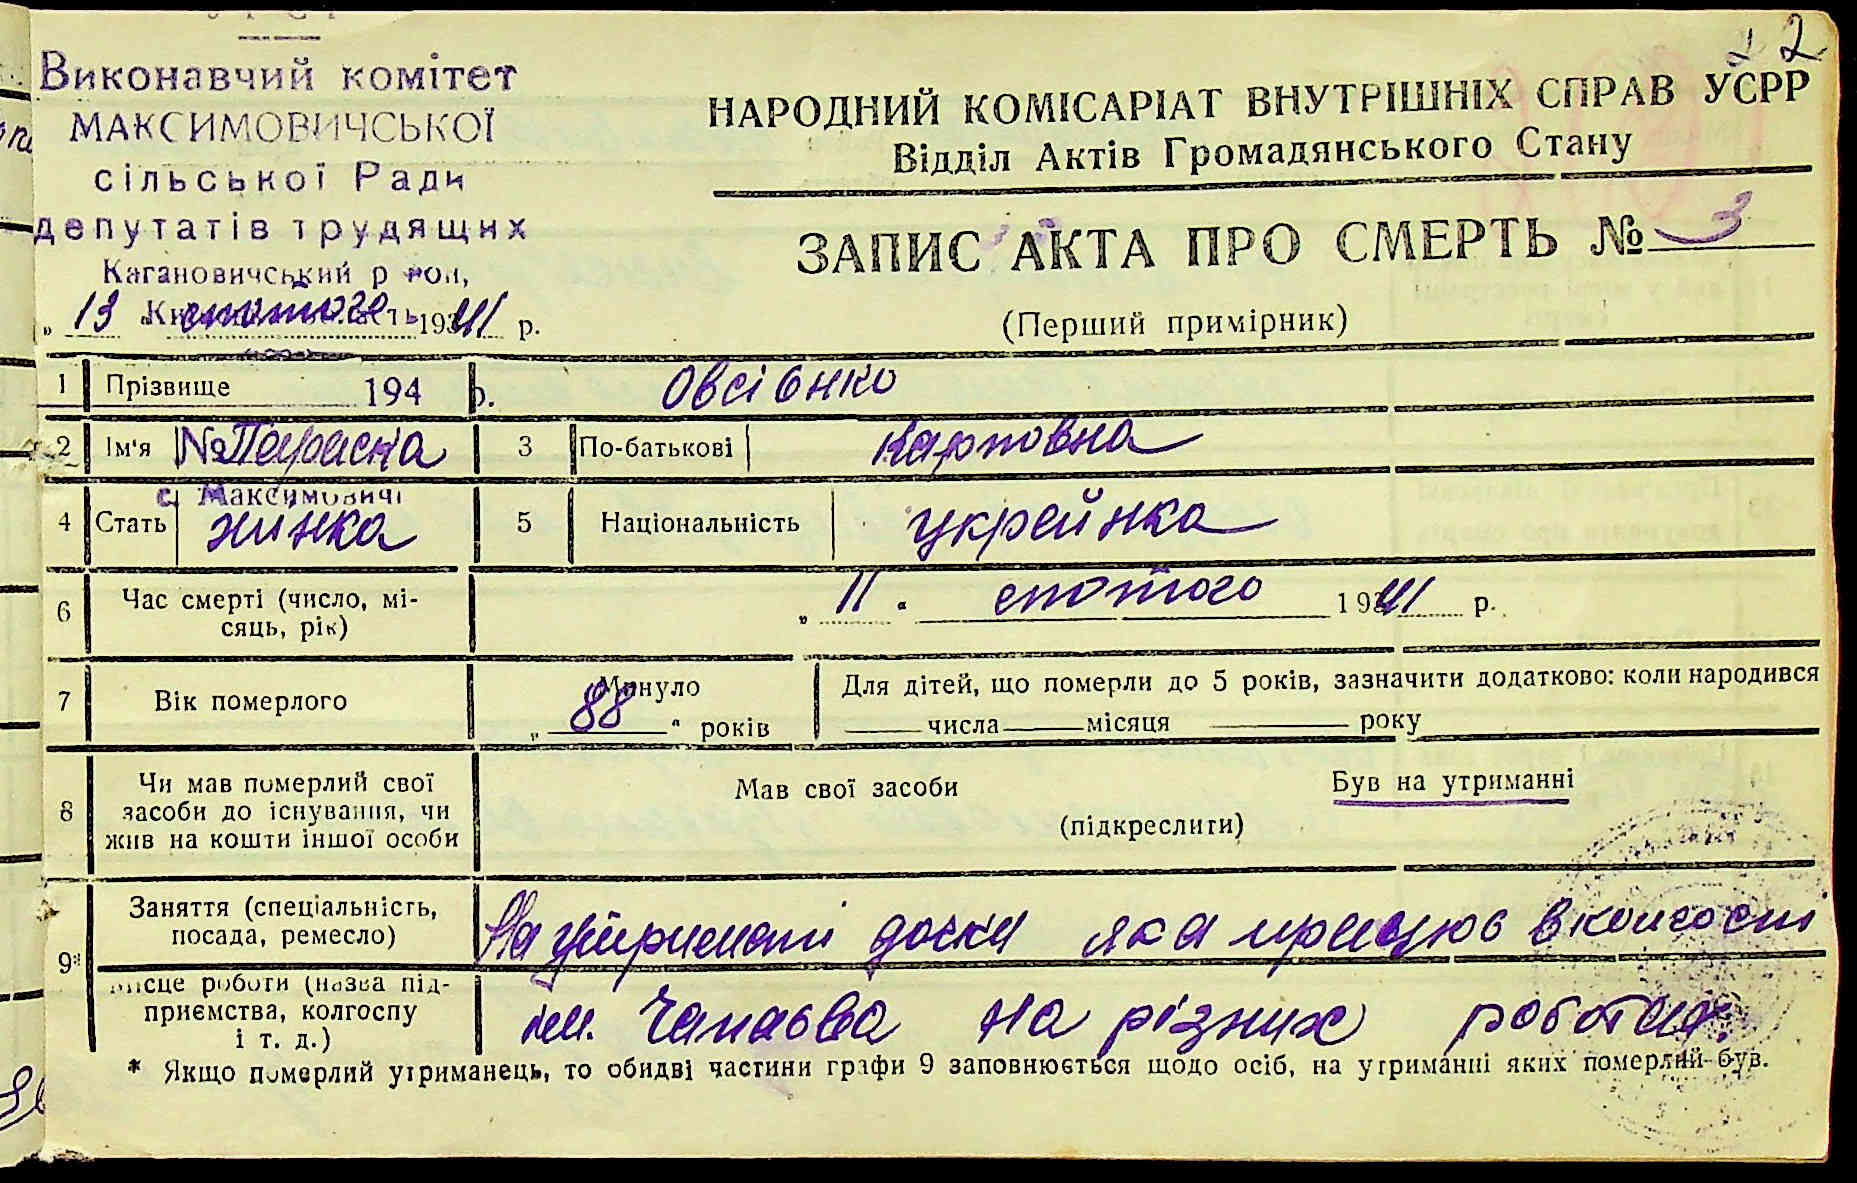 УРСР
Виконавчий комітет
МАКСИМОВИЧСЬКОЇ
сільської Ради
депутатів трудящих
Кагановичський р йон,
„ 13 " лютого 1941 р.
194 р.
№
с. Максимовичі
2
НАРОДНИЙ КОМІСАРІАТ ВНУТРІШНІХ СПРАВ УСРР
Відділ Актів Громадянського Стану
ЗАПИС АКТА ПРО СМЕРТЬ № 3
(Перший примірник)
1 Прізвище Овсієнко
2 Ім'я Параска 3 По-батькові Карповна
4 Стать жинка 5 Національність украйнка
6 Час смерті (число, місяць, рік) „ 11 " лютого 1941 р.
7 Вік померлого Минуло „ 88 " років Для дітей, що померли до 5 років, зазначити додатково: коли народився
числа місяця року
8 Чи мав померлий свої засоби до існування, чи жив на кошти іншої особи Мав свої засоби Був на утриманні
(підкреслити)
9* Заняття (спеціальність, посада, ремесло) На утриманні дочки яка працює в колгоспі
Місце роботи (назва підприємства, колгоспу і т. д.) ім. Чапаєва на різних роботах.
* Якщо померлий утриманець, то обидві частини графи 9 заповнюється щодо осіб, на утриманні яких померлий був.